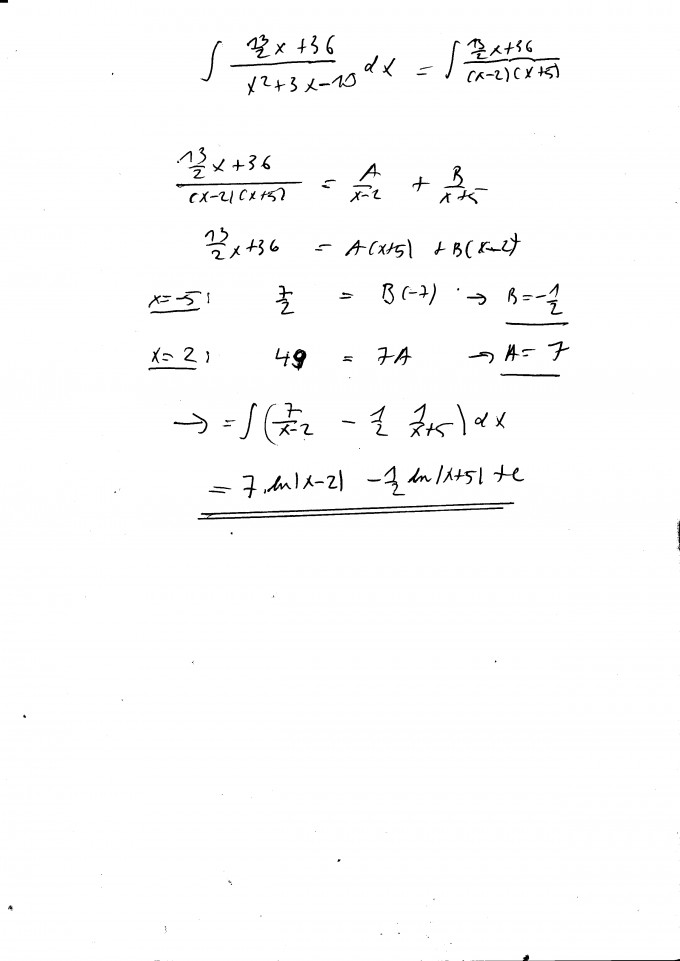 ∫ (13/2 x + 36)/(x² + 3x − 10) dx = ∫ (13/2 x + 36)/((x−2)(x+5))
(13/2 x + 36)/((x−2)(x+5)) = A/(x−2) + B/(x+5)
13/2 x + 36 = A(x+5) + B(x−2)
x = −5: 7/2 = B(−7) → B = −1/2
x = 2: 49 = 7A → A = 7
→ = ∫ (7/(x−2) − 1/2 1/(x+5)) dx
= 7·ln|x−2| − 1/2 ln|x+5| + c